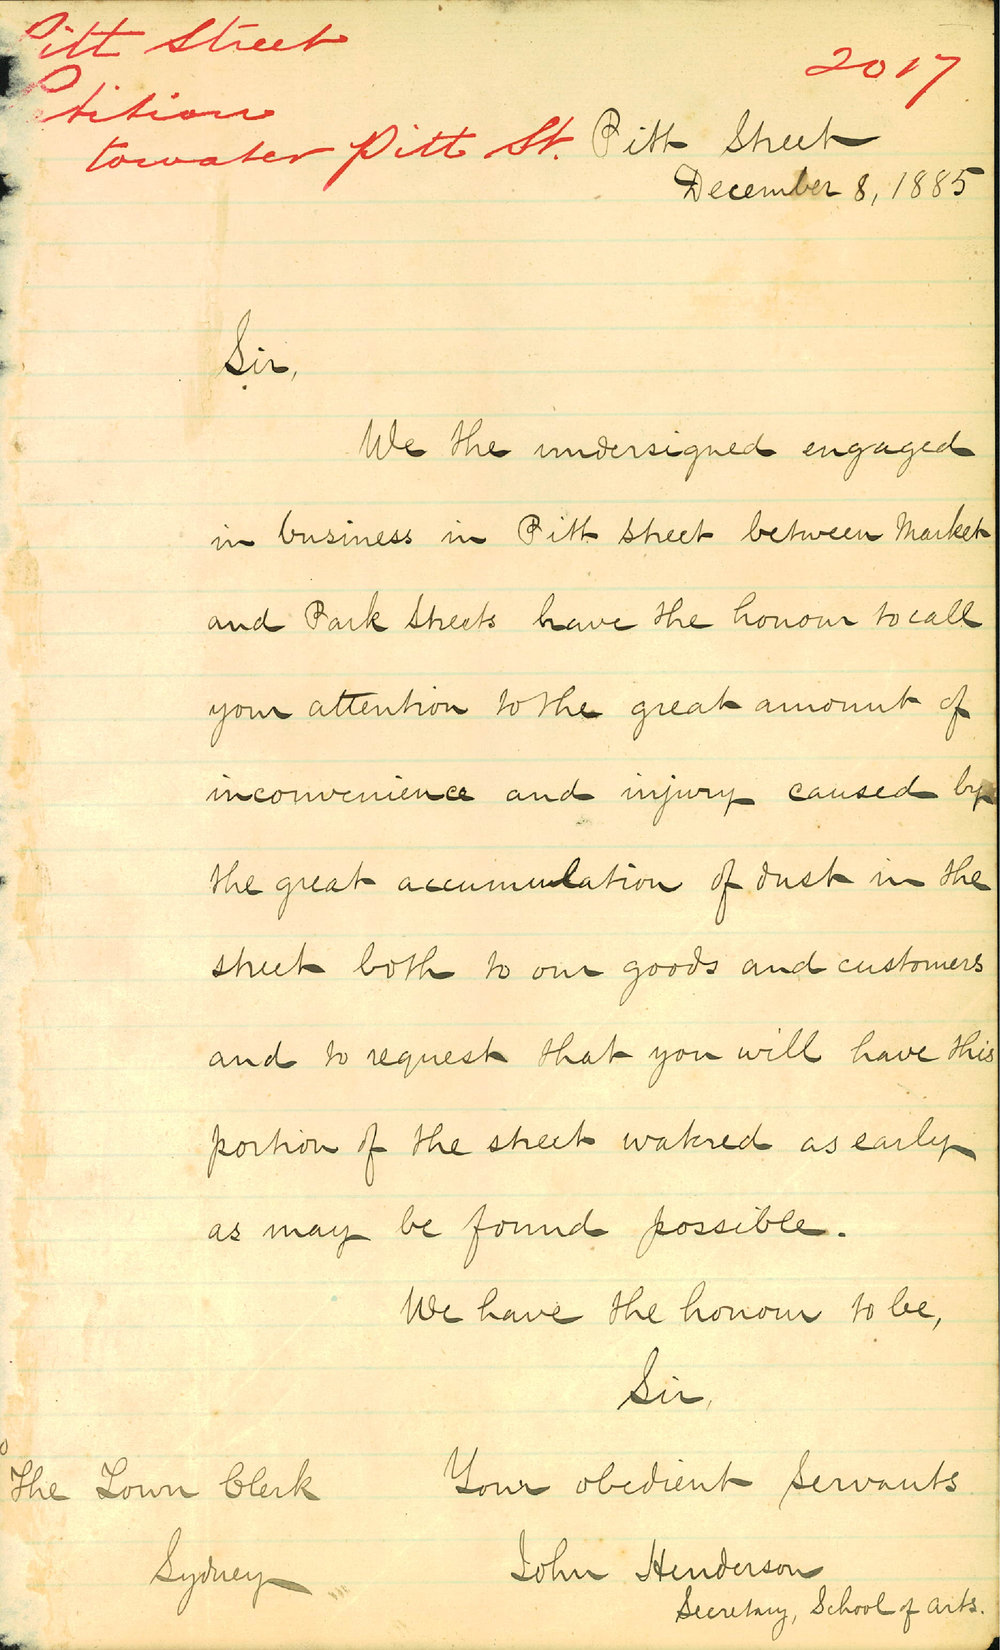 Pitt Street
Petition
to water Pitt St.
2017
Pitt Street
December 8, 1885
Sir,
We the undersigned engaged
in business in Pitt Street between Market
and Park Streets have the honour to call
your attention to the great amount of
inconvenience and injury caused by
the great accumulation of dust in the
street both to our goods and customers
and to request that you will have this
portion of the street watered as early
as may be found possible.
We have the honour to be,
Sir,
Your obedient Servants
The Town Clerk
Sydney
John Henderson
Secretary, School of Arts.